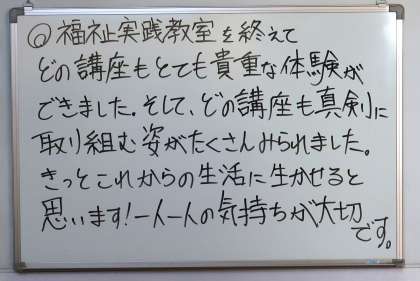 ◎福祉実践教室を終えて
どの講座もとても貴重な体験が
できました。そして、どの講座も真剣に
取り組む姿がたくさんみられました。
きっとこれからの生活に生かせると
思います!一人一人の気持ちが大切
です。